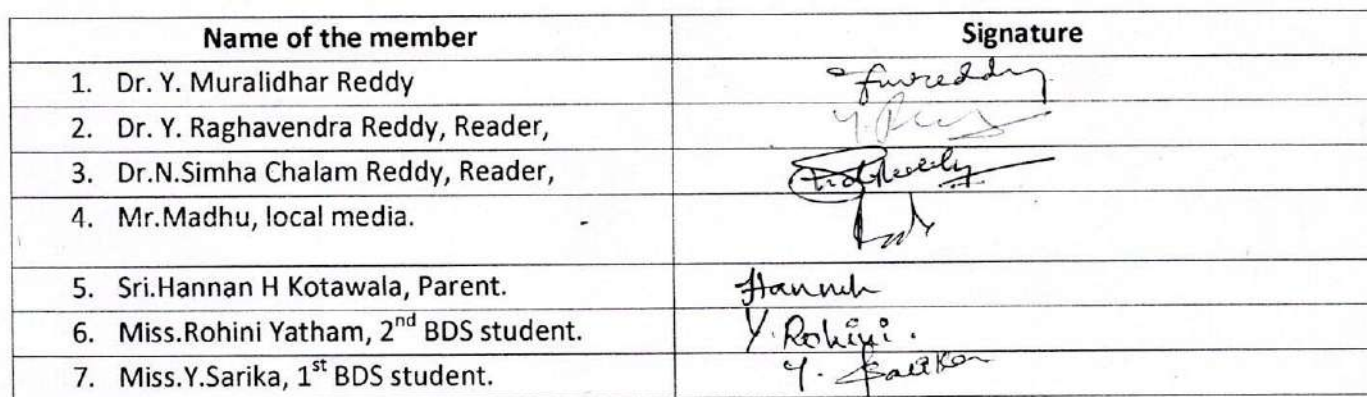 Name of the member Signature
1. Dr. Y. Muralidhar Reddy
2. Dr. Y. Raghavendra Reddy, Reader,
3. Dr.N.Simha Chalam Reddy, Reader,
4. Mr.Madhu, local media.
5. Sri.Hannan H Kotawala, Parent.
6. Miss.Rohini Yatham, 2nd BDS student. Y. Rohini.
7. Miss.Y.Sarika, 1st BDS student.